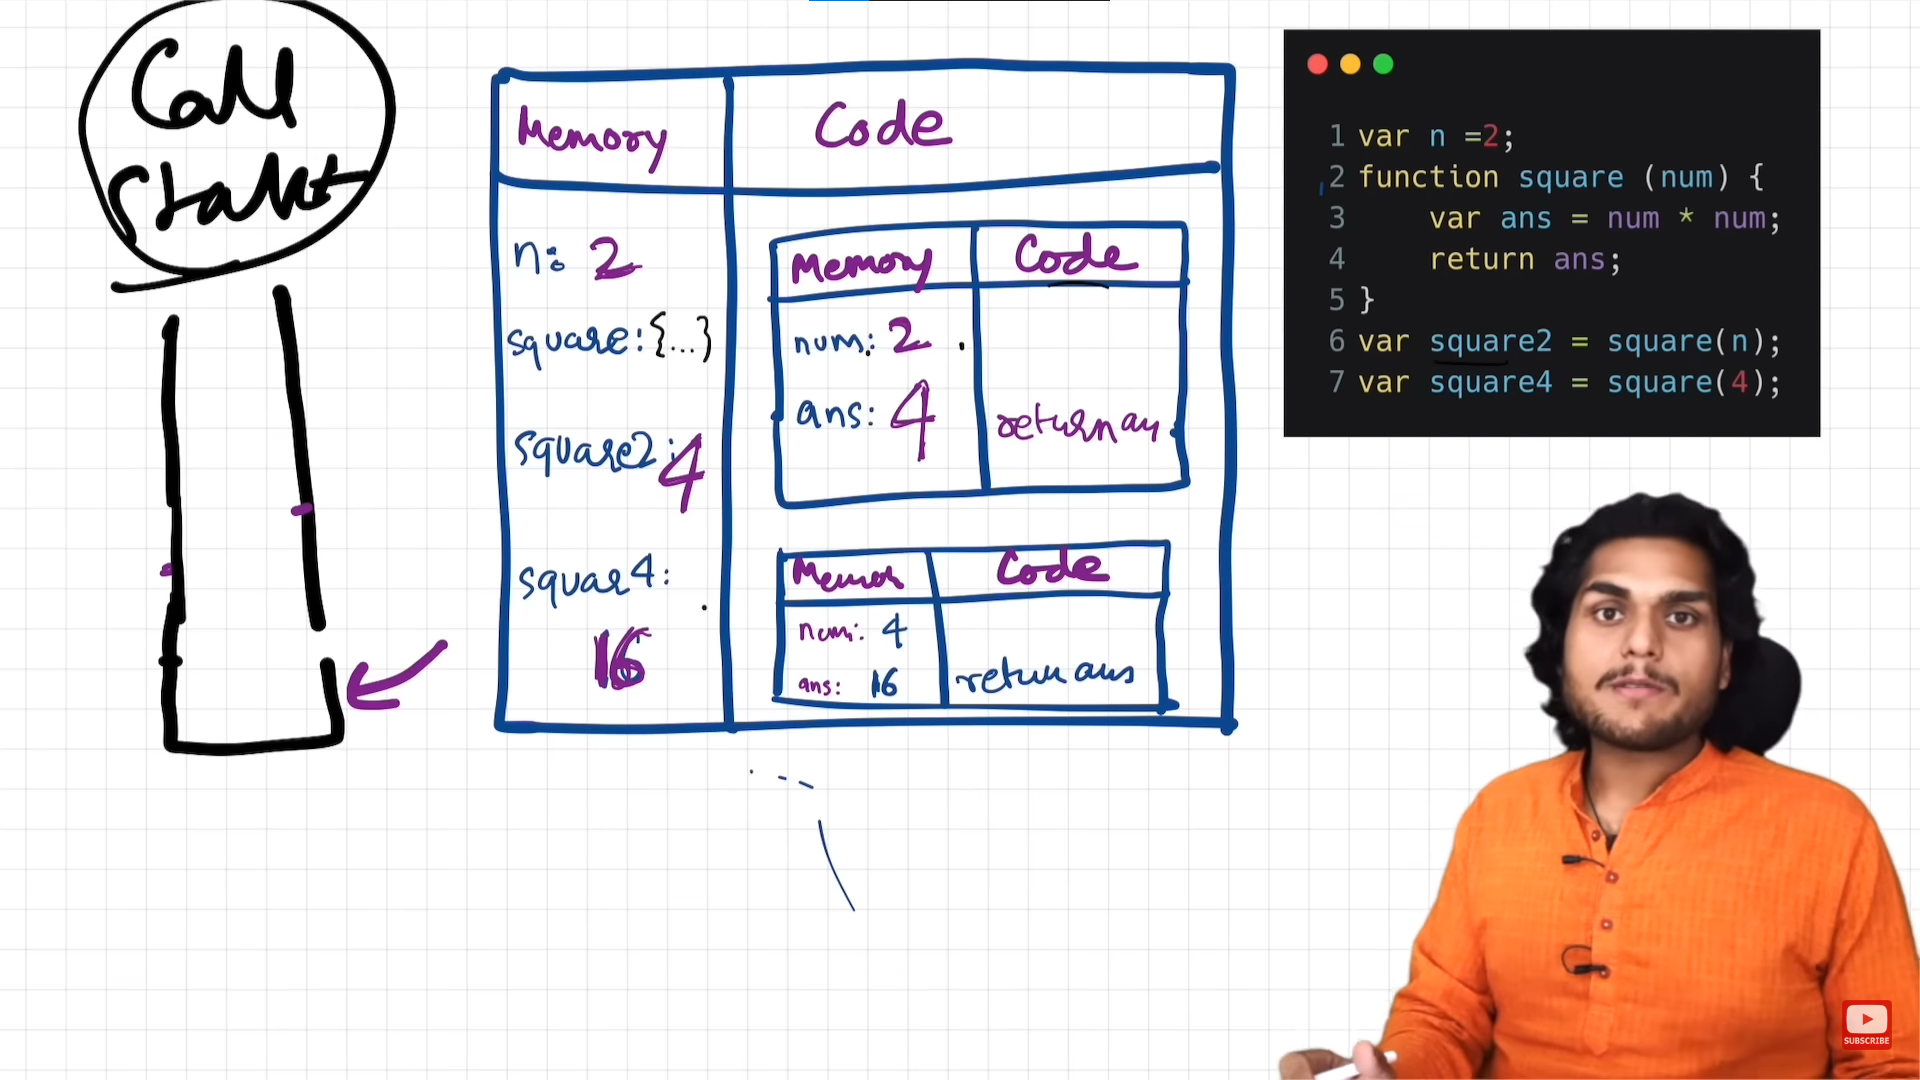 Call
Stack
Memory
Code
n: 2
square: {...}
square2: 4
squar4:
16
Memory
Code
num: 2
ans: 4
return an
Code
num: 4
ans: 16
return ans
1 var n =2;
2 function square (num) {
3 var ans = num * num;
4 return ans;
5 }
6 var square2 = square(n);
7 var square4 = square(4);
SUBSCRIBE